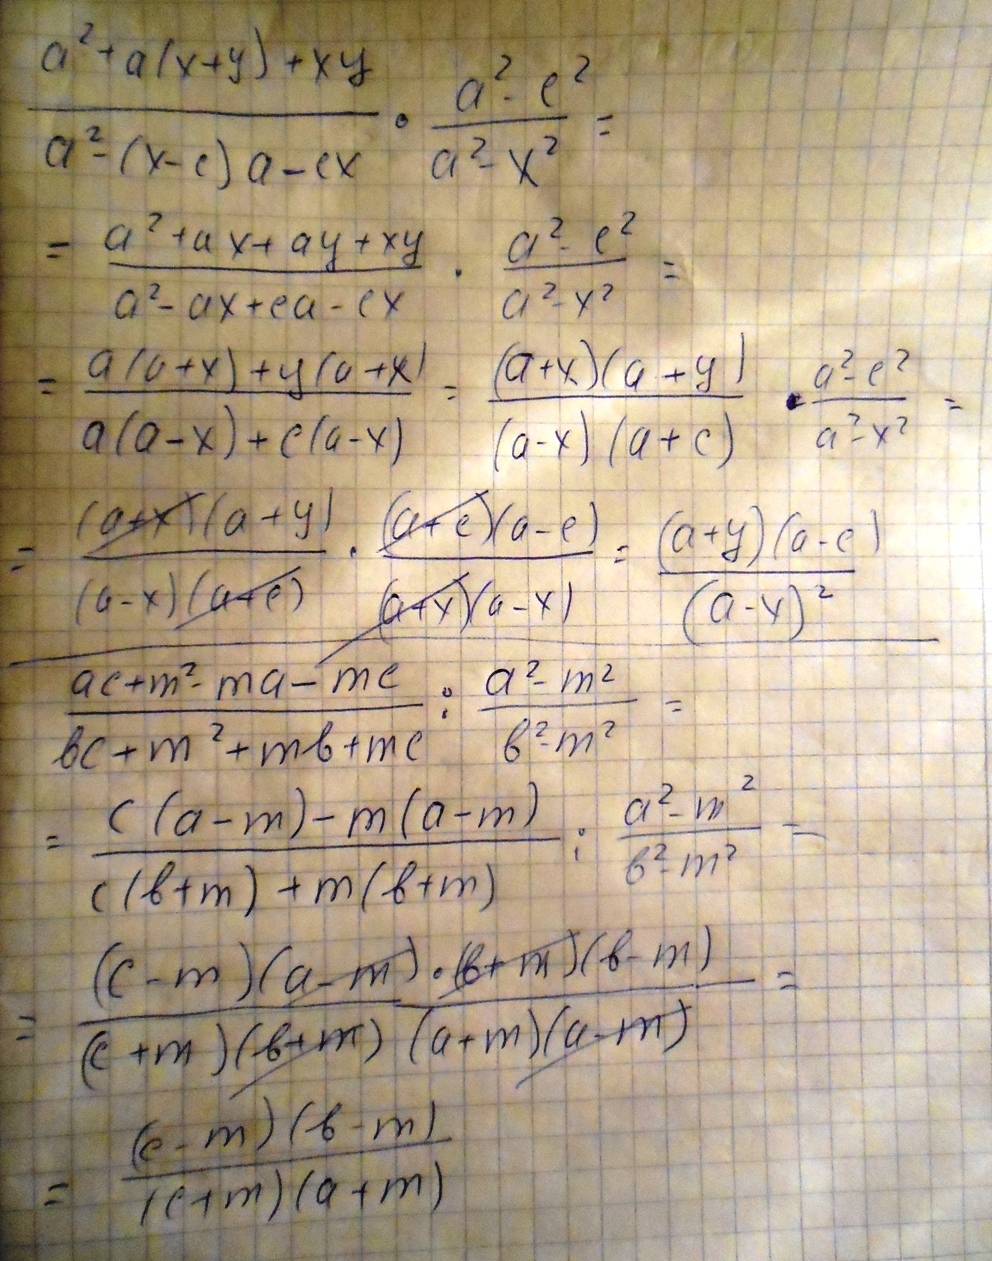 (a²+a(x+y)+xy)/(a²-(x-c)a-cx) • (a²-c²)/(a²-x²) =
= (a²+ax+ay+xy)/(a²-ax+ca-cx) · (a²-c²)/(a²-x²) =
= (a(a+x)+y(a+x))/(a(a-x)+c(a-x)) = ((a+x)(a+y))/((a-x)(a+c)) • (a²-c²)/(a²-x²) =
= ((a+x)(a+y))/((a-x)(a+c)) · ((a+c)(a-c))/((a+x)(a-x)) = ((a+y)(a-c))/((a-x)²)
(ac+m²-ma-mc)/(вc+m²+mв+mc) : (a²-m²)/(в²-m²) =
= (c(a-m)-m(a-m))/(c(в+m)+m(в+m)) : (a²-m²)/(в²-m²) =
= ((c-m)(a-m)·(в+m)(в-m))/((c+m)(в+m)(a+m)(a-m)) =
= ((c-m)(в-m))/((c+m)(a+m))